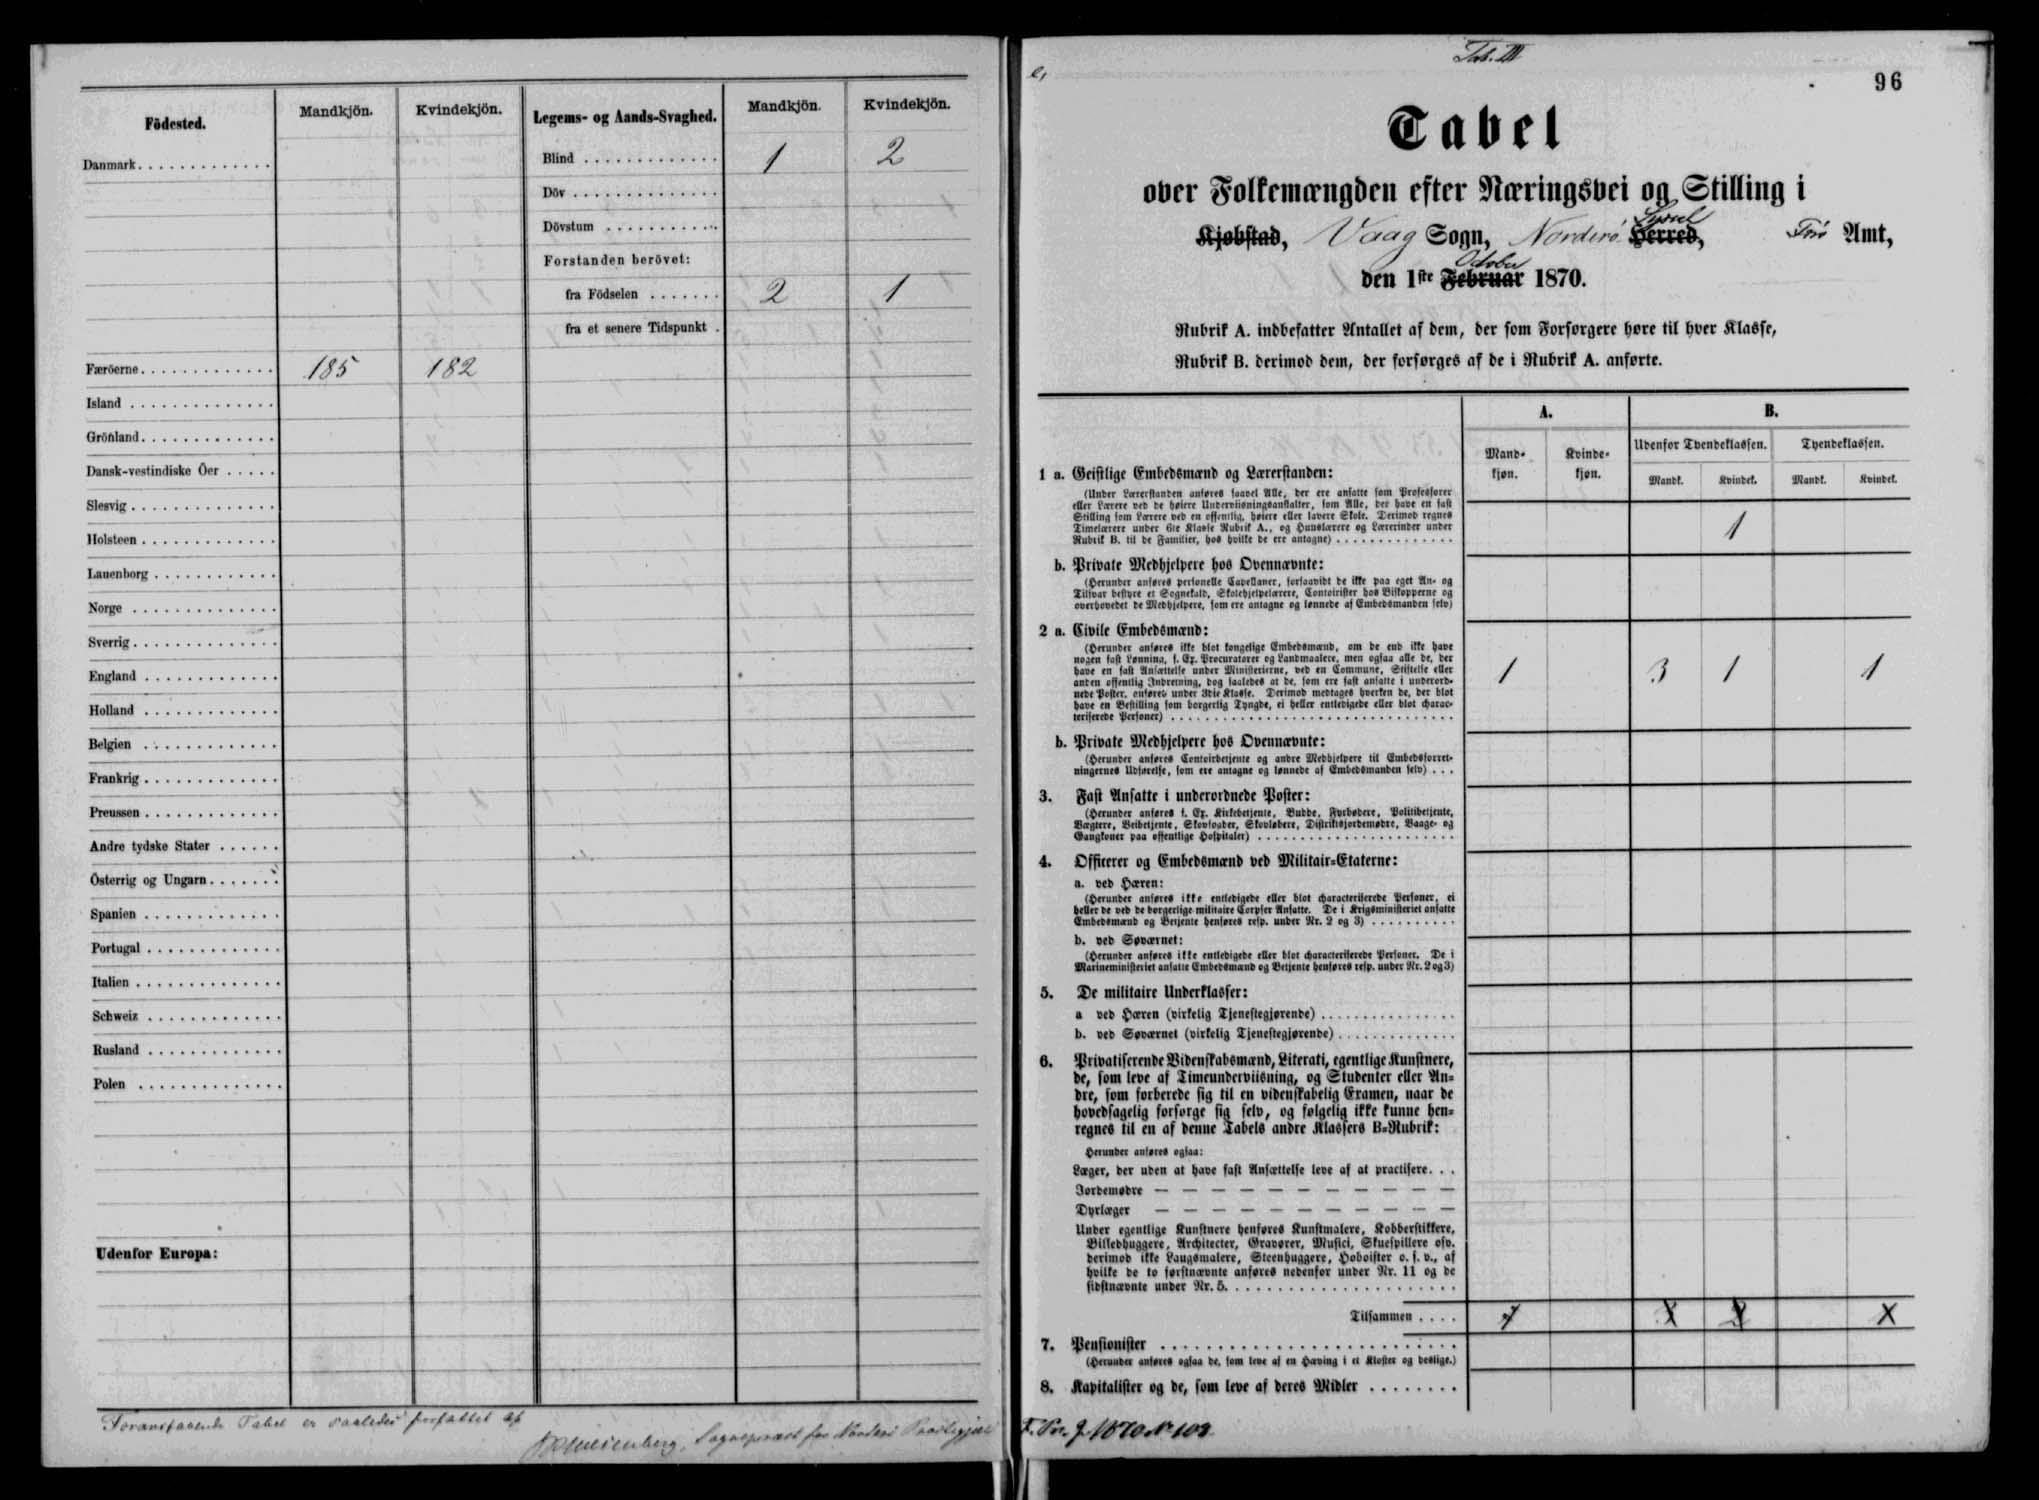 Födested. Mandkjön. Kvindekjön. Legems- og Aands-Svaghed. Mandkjön. Kvindekjön.
Danmark
Færöerne 185 182
Island
Grönland
Dansk-vestindiske Öer
Slesvig
Holsteen
Lauenborg
Norge
Sverrig
England
Holland
Belgien
Frankrig
Preussen
Andre tydske Stater
Österrig og Ungarn
Spanien
Portugal
Italien
Schweiz
Rusland
Polen
Udenfor Europa:
Blind 1 2
Döv
Dövstum
Forstanden berövet:
fra Födselen 2 1
fra et senere Tidspunkt
Foranstaaende Tabel er saaledes forfattet af
Sognepræst for Norderö Præstegjeld
Tab. III
96
Tabel
over Folkemængden efter Næringsvei og Stilling i
Kjøbstad, Vaag Sogn, Norderö Syssel Herred, Färö Amt,
den 1ste October Februar 1870.
Rubrik A. indbefatter Antallet af dem, der som Forsørgere høre til hver Klasse,
Rubrik B. derimod dem, der forsørges af de i Rubrik A. anførte.
A. B.
Mandkjøn. Kvindekjøn. Udenfor Tyendeklassen. Tyendeklassen.
Mandk. Kvindek. Mandk. Kvindek.
1 a. Geistlige Embedsmænd og Lærerstanden:
(Under Lærerstanden anføres saavel Alle, der ere ansatte som Professorer
eller Lærere ved de høiere Underviisningsanstalter, som Alle, der have en fast
Stilling som Lærere ved en offentlig, høiere eller lavere Skole. Derimod regnes
Timelærere under 6te Klasse Rubrik A., og Huuslærere og Lærerinder under
Rubrik B. til de Familier, hos hvilke de ere antagne) 1
b. Private Medhjelpere hos Ovennævnte:
(Herunder anføres personelle Capellaner, forsaavidt de ikke paa eget An- og
Tilsvar bestyre et Sognekald, Skolehjelpelærere, Contoirister hos Biskopperne og
overhovedet de Medhjelpere, som ere antagne og lønnede af Embedsmanden selv)
2 a. Civile Embedsmænd:
(Herunder anføres ikke blot kongelige Embedsmænd, om de end ikke have
nogen fast Lønning, f. Ex. Procuratorer og Landmaalere, men ogsaa alle de, der
have en fast Ansættelse under Ministerierne, ved en Commune, Stiftelse eller
anden offentlig Indretning, dog saaledes at de, som ere fast ansatte i underord-
nede Poster, anføres under 3die Klasse. Derimod medtages hverken de, der blot
have en Bestilling som borgerlig Tyngde, ei heller entledigede eller blot charac-
teriserede Personer) 1 3 1 1
b. Private Medhjelpere hos Ovennævnte:
(Herunder anføres Contoirbetjente og andre Medhjelpere til Embedsforret-
ningernes Udførelse, som ere antagne og lønnede af Embedsmanden selv)
3. Fast Ansatte i underordnede Poster:
(Herunder anføres f. Ex. Kirkebetjente, Budde, Fyrbødere, Politibetjente,
Vægtere, Veibetjente, Skovfogder, Skovløbere, Distriktsjordemødre, Vaage- og
Gangkoner paa offentlige Hospitaler)
4. Officerer og Embedsmænd ved Militair-Etaterne:
a. ved Hæren:
(Herunder anføres ikke entledigede eller blot characteriserede Personer, ei
heller de ved de borgerlige militaire Corpser Ansatte. De i Krigsministeriet ansatte
Embedsmænd og Betjente henføres resp. under Nr. 2 og 3)
b. ved Søværnet:
(Herunder anføres ikke entledigede eller blot characteriserede Personer. De i
Marineministeriet ansatte Embedsmænd og Betjente henføres resp. under Nr. 2 og 3)
5. De militaire Underklasser:
a ved Hæren (virkelig Tjenestegjørende)
b. ved Søværnet (virkelig Tjenestegjørende)
6. Privatiserende Videnskabsmænd, Literati, egentlige Kunstnere,
de, som leve af Timeunderviisning, og Studenter eller An-
dre, som forberede sig til en videnskabelig Examen, naar de
hovedsagelig forsørge sig selv, og følgelig ikke kunne hen-
regnes til en af denne Tabels andre Klassers B-Rubrik:
Herunder anføres ogsaa:
Læger, der uden at have fast Ansættelse leve af at practisere
Jordemødre — — — — — — — — — — —
Dyrlæger — — — — — — — — — — —
Under egentlige Kunstnere henføres Kunstmalere, Kobberstikkere,
Billedhuggere, Architecter, Gravører, Musici, Skuespillere osv.
derimod ikke Laugsmalere, Steenhuggere, Hoboister o. s. v., af
hvilke de to førstnævnte anføres nedenfor under Nr. 11 og de
sidstnævnte under Nr. 5.
Tilsammen
7. Pensionister
(Herunder anføres ogsaa de, som leve af en Hæving i et Kloster og deslige.)
8. Kapitalister og de, som leve af deres Midler
1870 No 108